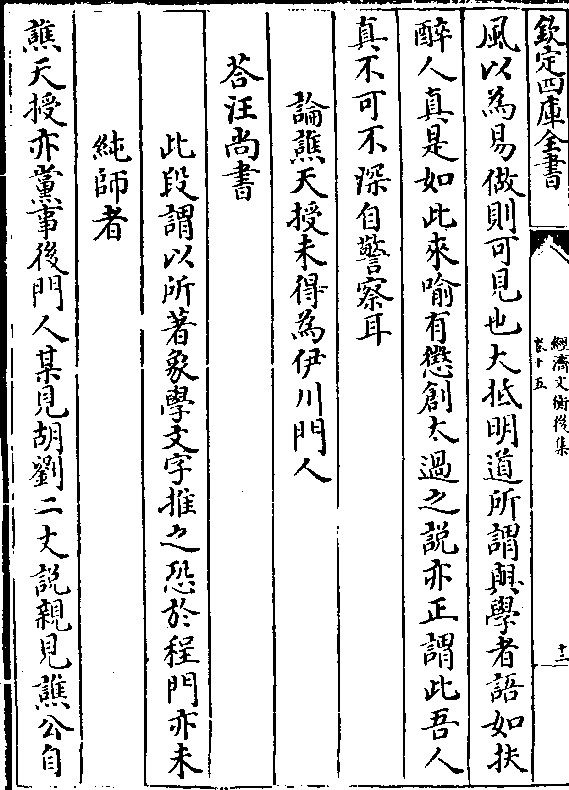 欽定四庫全書
經濟文衡後集
卷十五
十二
風以為易做則可見也大抵明道所謂與學者語如扶
醉人真是如此來喻有懲創太過之說亦正謂此吾人
真不可不深自警察耳
論譙天授未得為伊川門人
荅汪尚書
此段謂以所著象學文字推之恐於程門亦未
純師者
譙天授亦黨事後門人某見胡劉二丈說親見譙公自